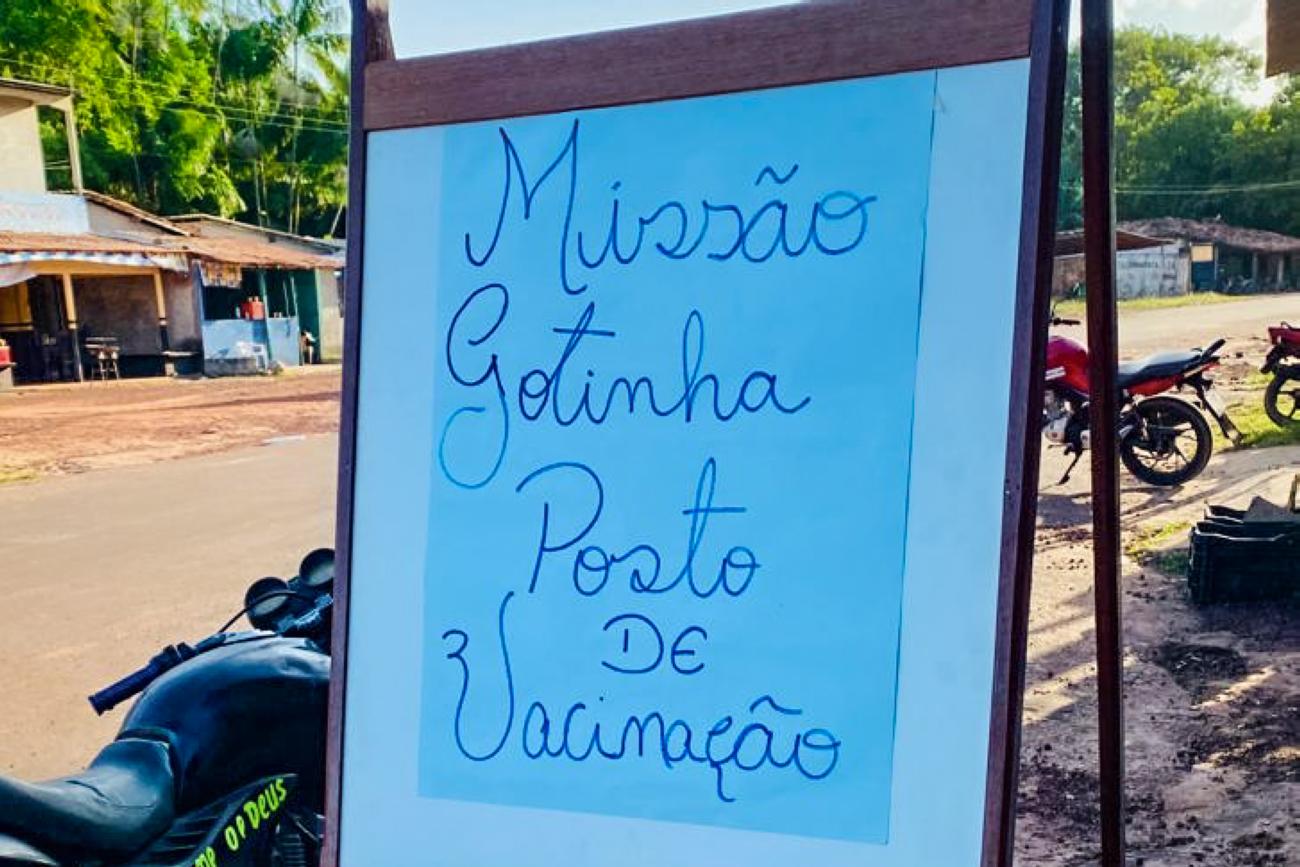 Missão
Gotinha
Posto
DE
Vacinação
DEUS